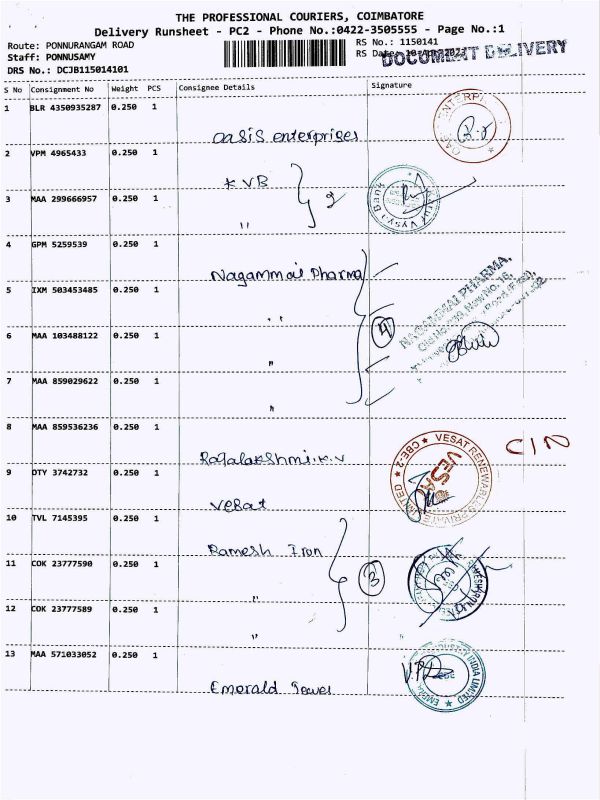 THE PROFESSIONAL COURIERS, COIMBATORE
Delivery Runsheet - PC2 - Phone No.:0422-3505555 - Page No.:1
Route: PONNURANGAM ROAD
RS No.: 1150141
Staff: PONNUSAMY
RS Date: 10-Apr-2023
DOCUMENT DELIVERY
DRS No.: DCJB115014101
S No Consignment No Weight PCS Consignee Details Signature
1 BLR 4350935287 0.250 1
Oasis enterprises
2 VPM 4965433 0.250 1
KVB
2
3 MAA 299666957 0.250 1
"
4 GPM 5259539 0.250 1
Nagammai Pharma
5 IXM 503453485 0.250 1
"
4
NAGAMMAI PHARMA,
6 MAA 103488122 0.250 1
"
7 MAA 859029622 0.250 1
"
8 MAA 859536236 0.250 1
Rajalakshmi.K.V
CIN
9 DTY 3742732 0.250 1
Vesat
VESAT RENEWABLES PRIVATE LIMITED
CBE-2
10 TVL 7145395 0.250 1
Ramesh Iron
11 COK 23777590 0.250 1
"
3
12 COK 23777589 0.250 1
"
13 MAA 571033052 0.250 1
Emerald Jewel